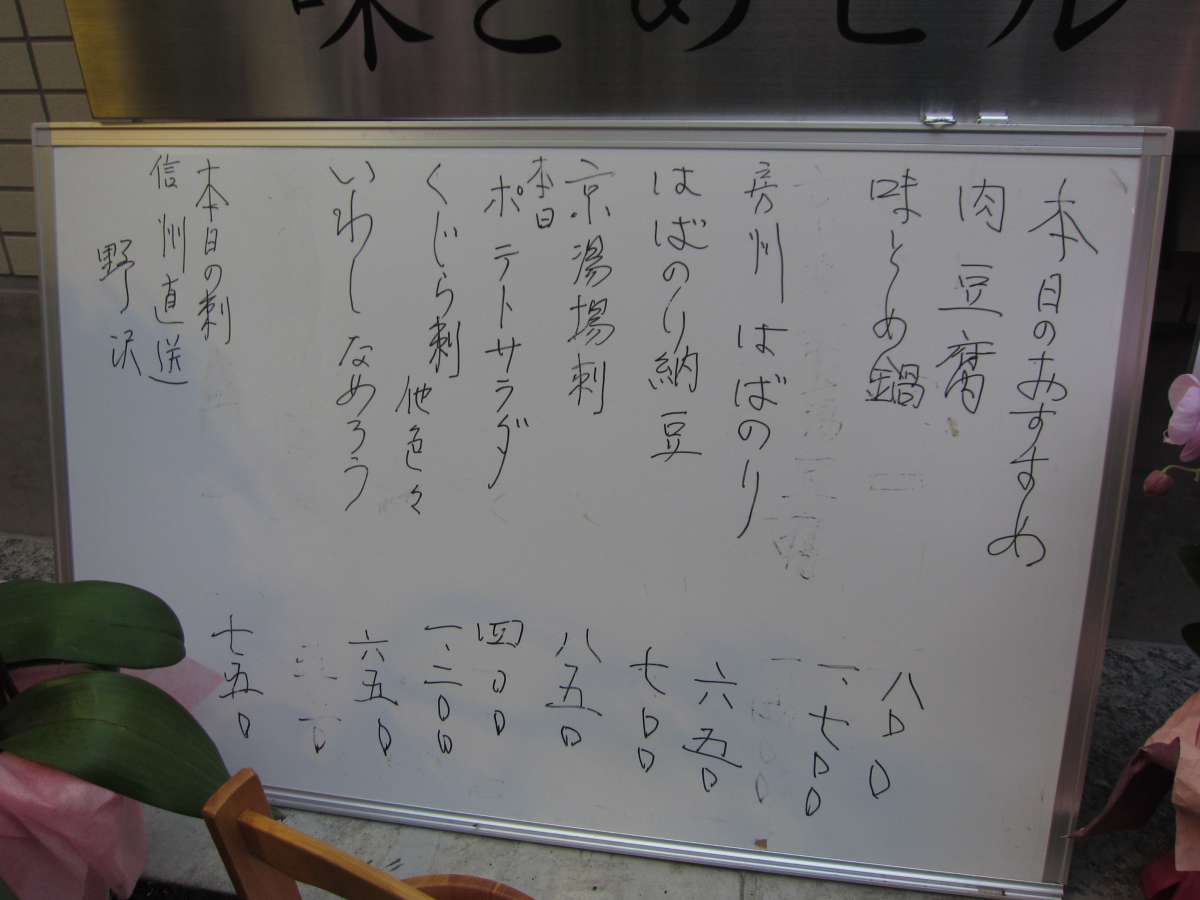 味とめビル
本日のおすすめ
肉豆腐 八〇〇
味とめ鍋 一、七〇〇
房州はばのり 六五〇
はばのり納豆 七〇〇
京湯場刺 八五〇
本日
ポテトサラダ 四〇〇
くじら刺 他色々 一、二〇〇
いわしなめろう 六五〇
本日の刺 七五〇
信州直送
野沢